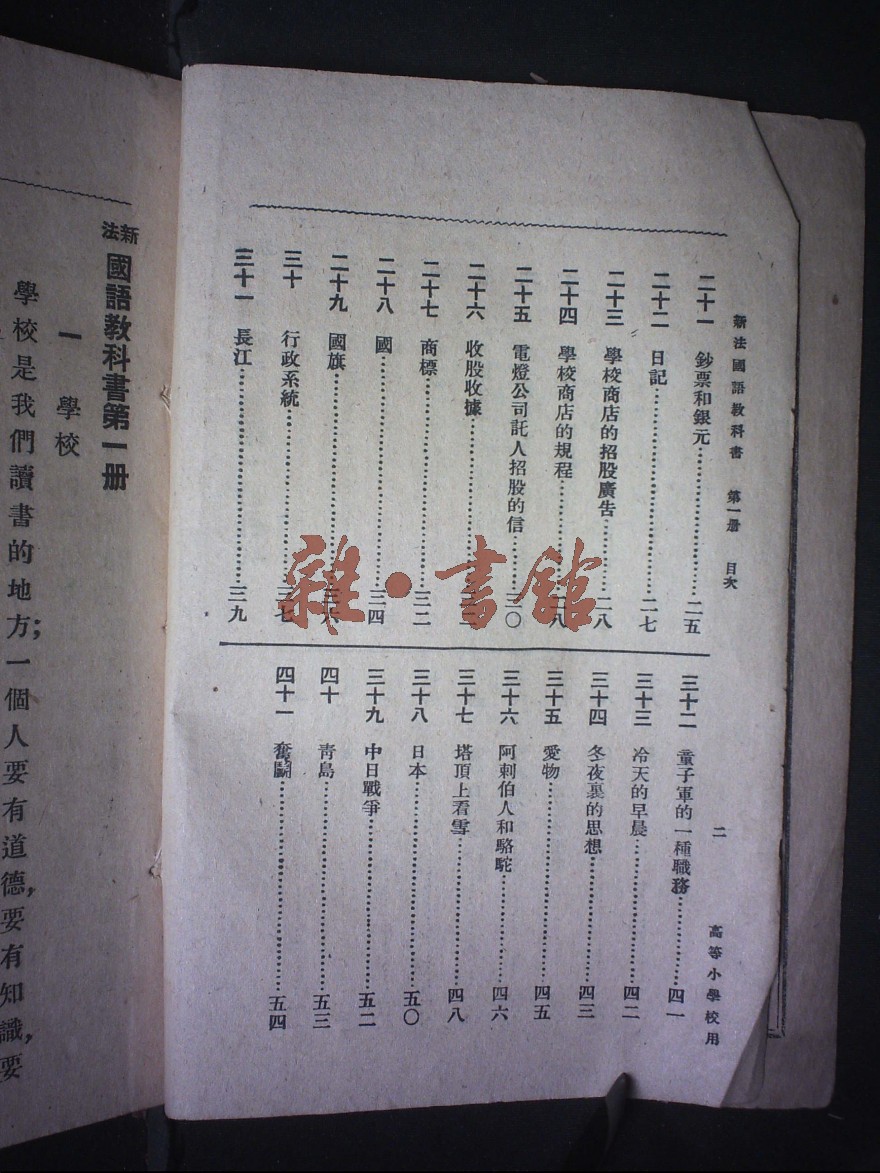 新法國語教科書 第一册 目次
二十一 鈔票和銀元……二五
二十二 日記……二七
二十三 學校商店的招股廣告……二八
二十四 學校商店的規程……二八
二十五 電燈公司託人招股的信……三〇
二十六 收股收據……三
二十七 商標……三二
二十八 國……三四
二十九 國旗……三六
三十 行政系統……三七
三十一 長江……三九
二 高等小學校用
三十二 童子軍的一種職務……四一
三十三 冷天的早晨……四二
三十四 冬夜裏的思想……四三
三十五 愛物……四五
三十六 阿剌伯人和駱駝……四六
三十七 塔頂上看雪……四八
三十八 日本……五〇
三十九 中日戰爭……五二
四十 靑島……五三
四十一 奮鬭……五四
新法國語教科書第一册
一 學校
學校是我們讀書的地方；一個人要有道德，要有知識，要
雜·書館